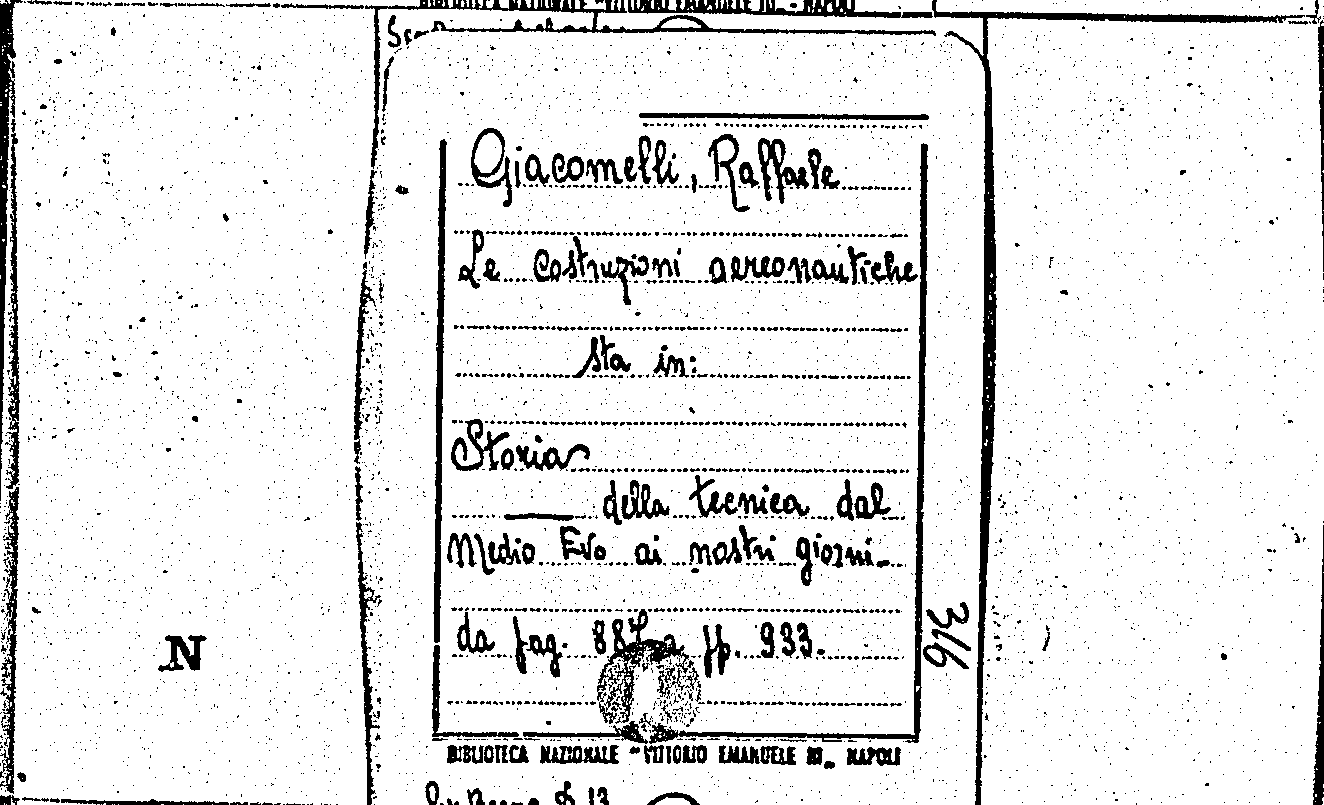 BIBLIOTECA NAZIONALE "VITTORIO EMANUELE III" - NAPOLI
Giacomelli, Raffaele
Le costruzioni aereonautiche
sta in:
Storia
della tecnica dal
Medio Evo ai nostri giorni.
da pag. 887 a pp. 933.
316
N
BIBLIOTECA NAZIONALE "VITTORIO EMANUELE III" - NAPOLI